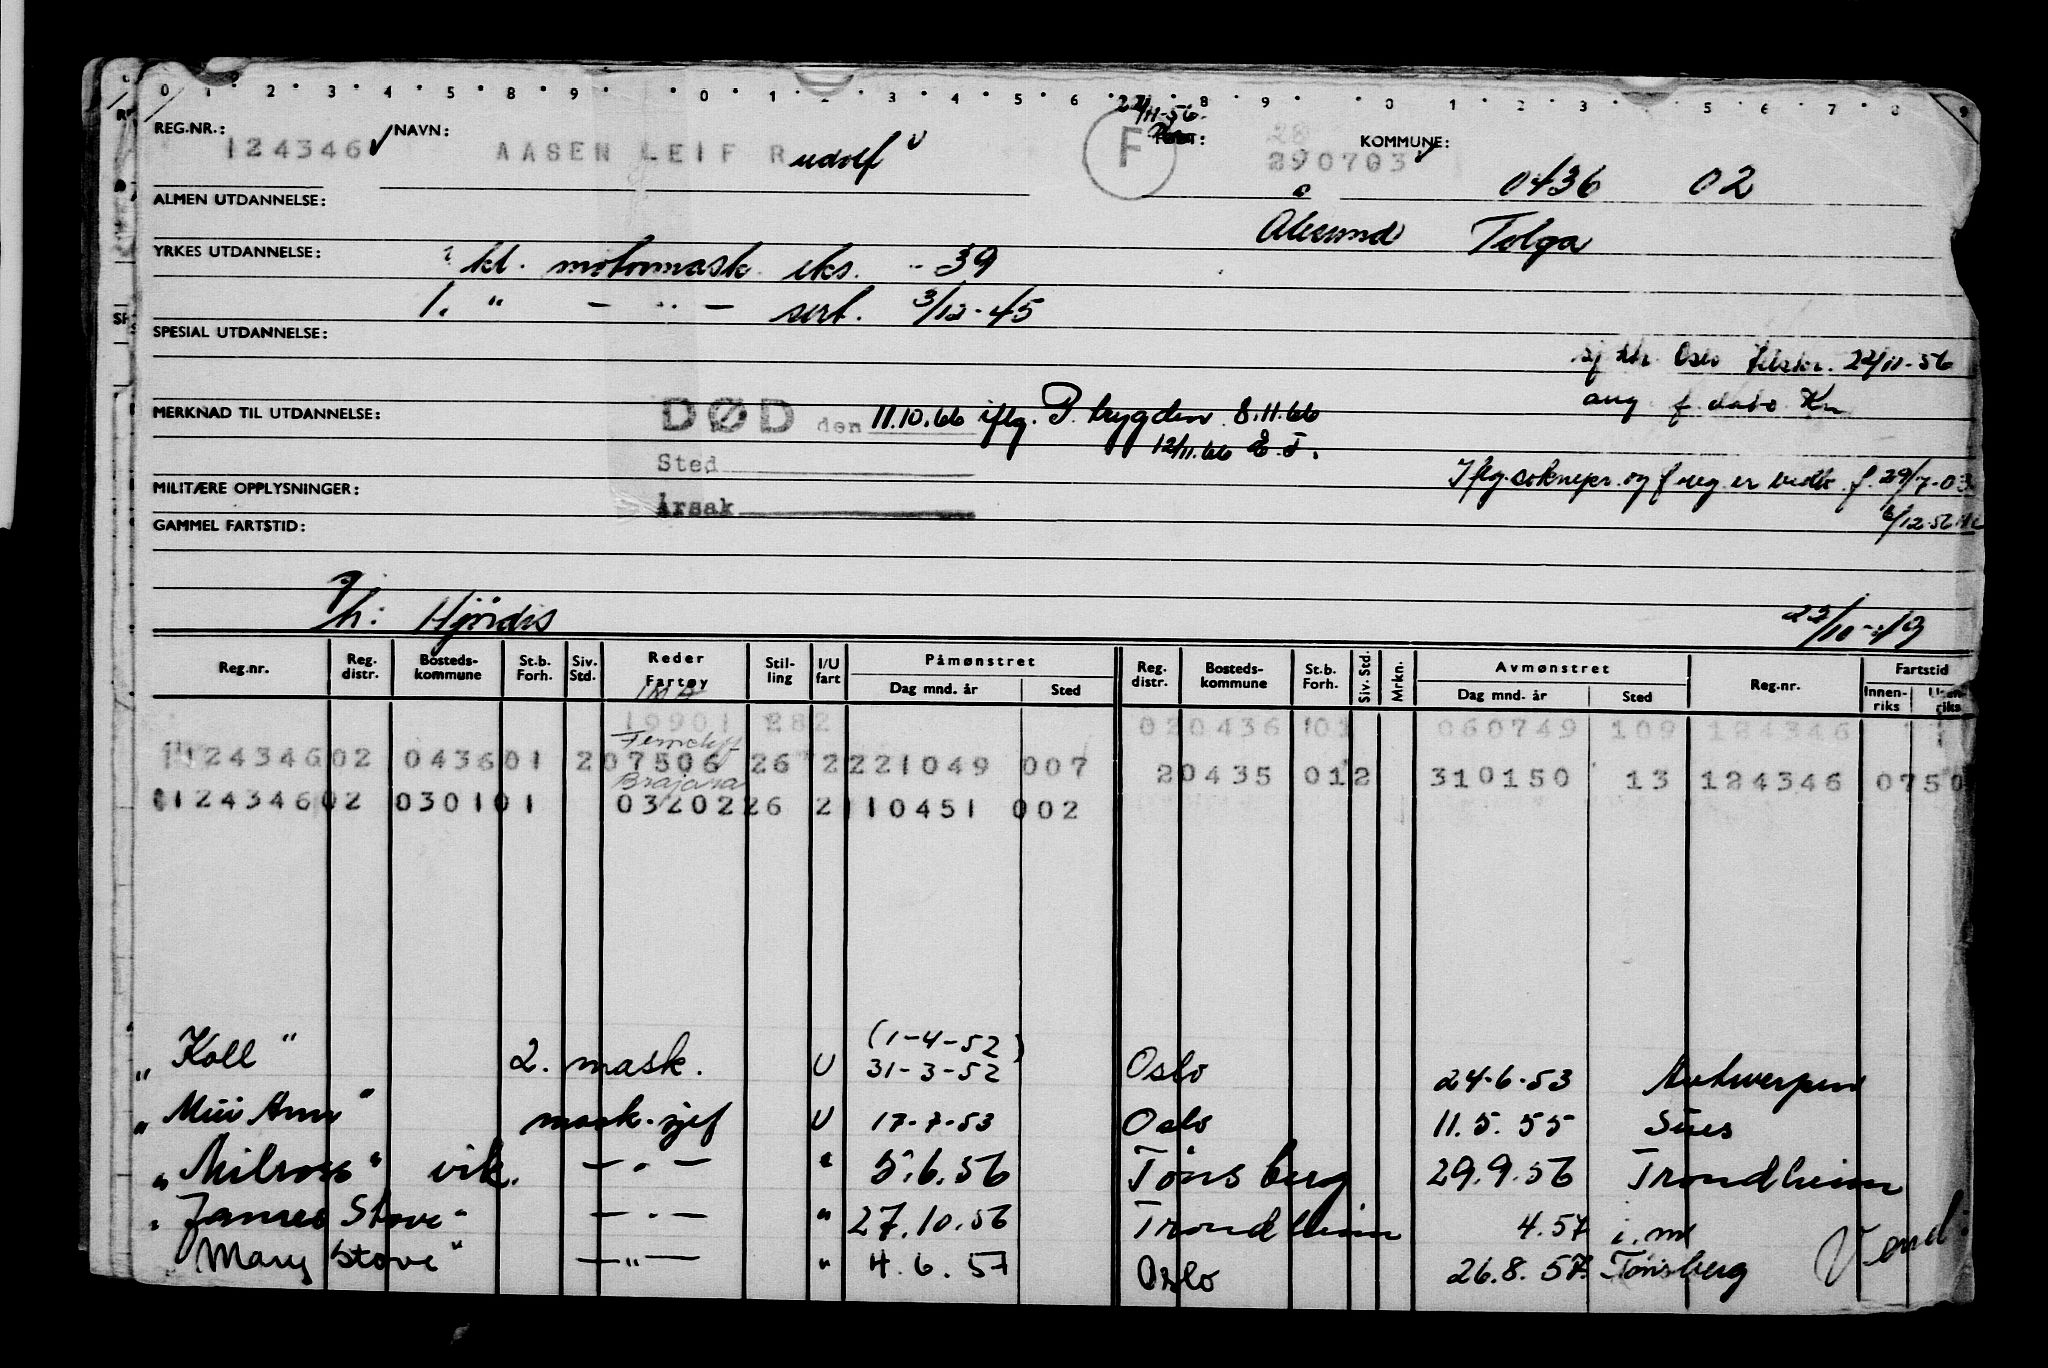 0 1 2 3 4 5 8 9 0 1 2 3 4 5 6 8 9 0 1 2 3 5 6 7 8 9
22/11-56.
REG.NR.: NAVN: F KOMMUNE:
124346 AASEN LEIF Rudolf 28 290703
0436 02
ALMEN UTDANNELSE:
Ålesund Tolga
YRKES UTDANNELSE: kl. motormask. eks. 39
1. " — " — sert. 3/12-45
SPESIAL UTDANNELSE:
Oslo 22/11-56
ang. f. dato
MERKNAD TIL UTDANNELSE: DØD den 11.10.66 iflg. P. trygden 8.11.66
12/11.66 E.T.
Sted
Iflg. soknepr. og f. reg. er vedk. f. 29/7-03
MILITÆRE OPPLYSNINGER:
Årsak
6/12-56
GAMMEL FARTSTID:
h: Hjørdis 25/10-43
Reg.nr. Reg. distr. Bosteds-kommune St.b. Forh. Siv. Std. Reder Fartøy Stil-ling I/U fart Påmønstret Dag mnd. år Sted Reg. distr. Bosteds-kommune St.b. Forh. Siv. Std. Mrkn. Avmønstret Dag mnd. år Sted Reg.nr. Fartstid Innen-riks Uten-riks
19901 282 020436 101 060749 109 124346
Ferncliff
124346 02 0436 01 2 07506 26 2 221049 007 20435 012 310150 13 124346 0750
Brajara
124346 02 0301 01 03202 26 2 110451 002
(1-4-52)
" Koll " 2. mask. U 31-3-52 Oslo 24-6-53 Antwerpen
" Mui Ann " mask.sjef U 17-7-53 Oslo 11.5.55 Sues
" Milross " vik. — " — " 5.6.56 Tønsberg 29.9.56 Trondheim
" James Stove " — " — " 27.10.56 Trondheim 4.57 i.m
Mary Stove " — " — " 4.6.57 Oslo 26.8.57. Tønsberg
Vend: